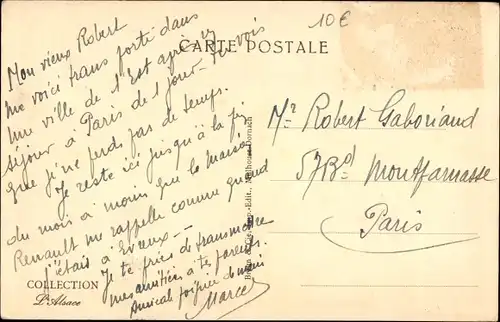 10€
CARTE POSTALE
Mon vieux Robert
me voici transporté dans
une ville de l'Est après un
séjour à Paris de 1 jour. Tu vois
que je ne perds pas de temps.
Je reste ici jusqu'à la fin
du mois à moins que la maison
Renault me rappelle comme quand
j'étais à Evreux —
Je te prie de transmettre
mes amitiés à tes parents.
Amicale poignée de main
Marcel
Mr Robert Gaboriaud
57 Bd Montparnasse
Paris
Braun & Cie, Imp.-Edit., Mulhouse-Dornach
COLLECTION
L'Alsace